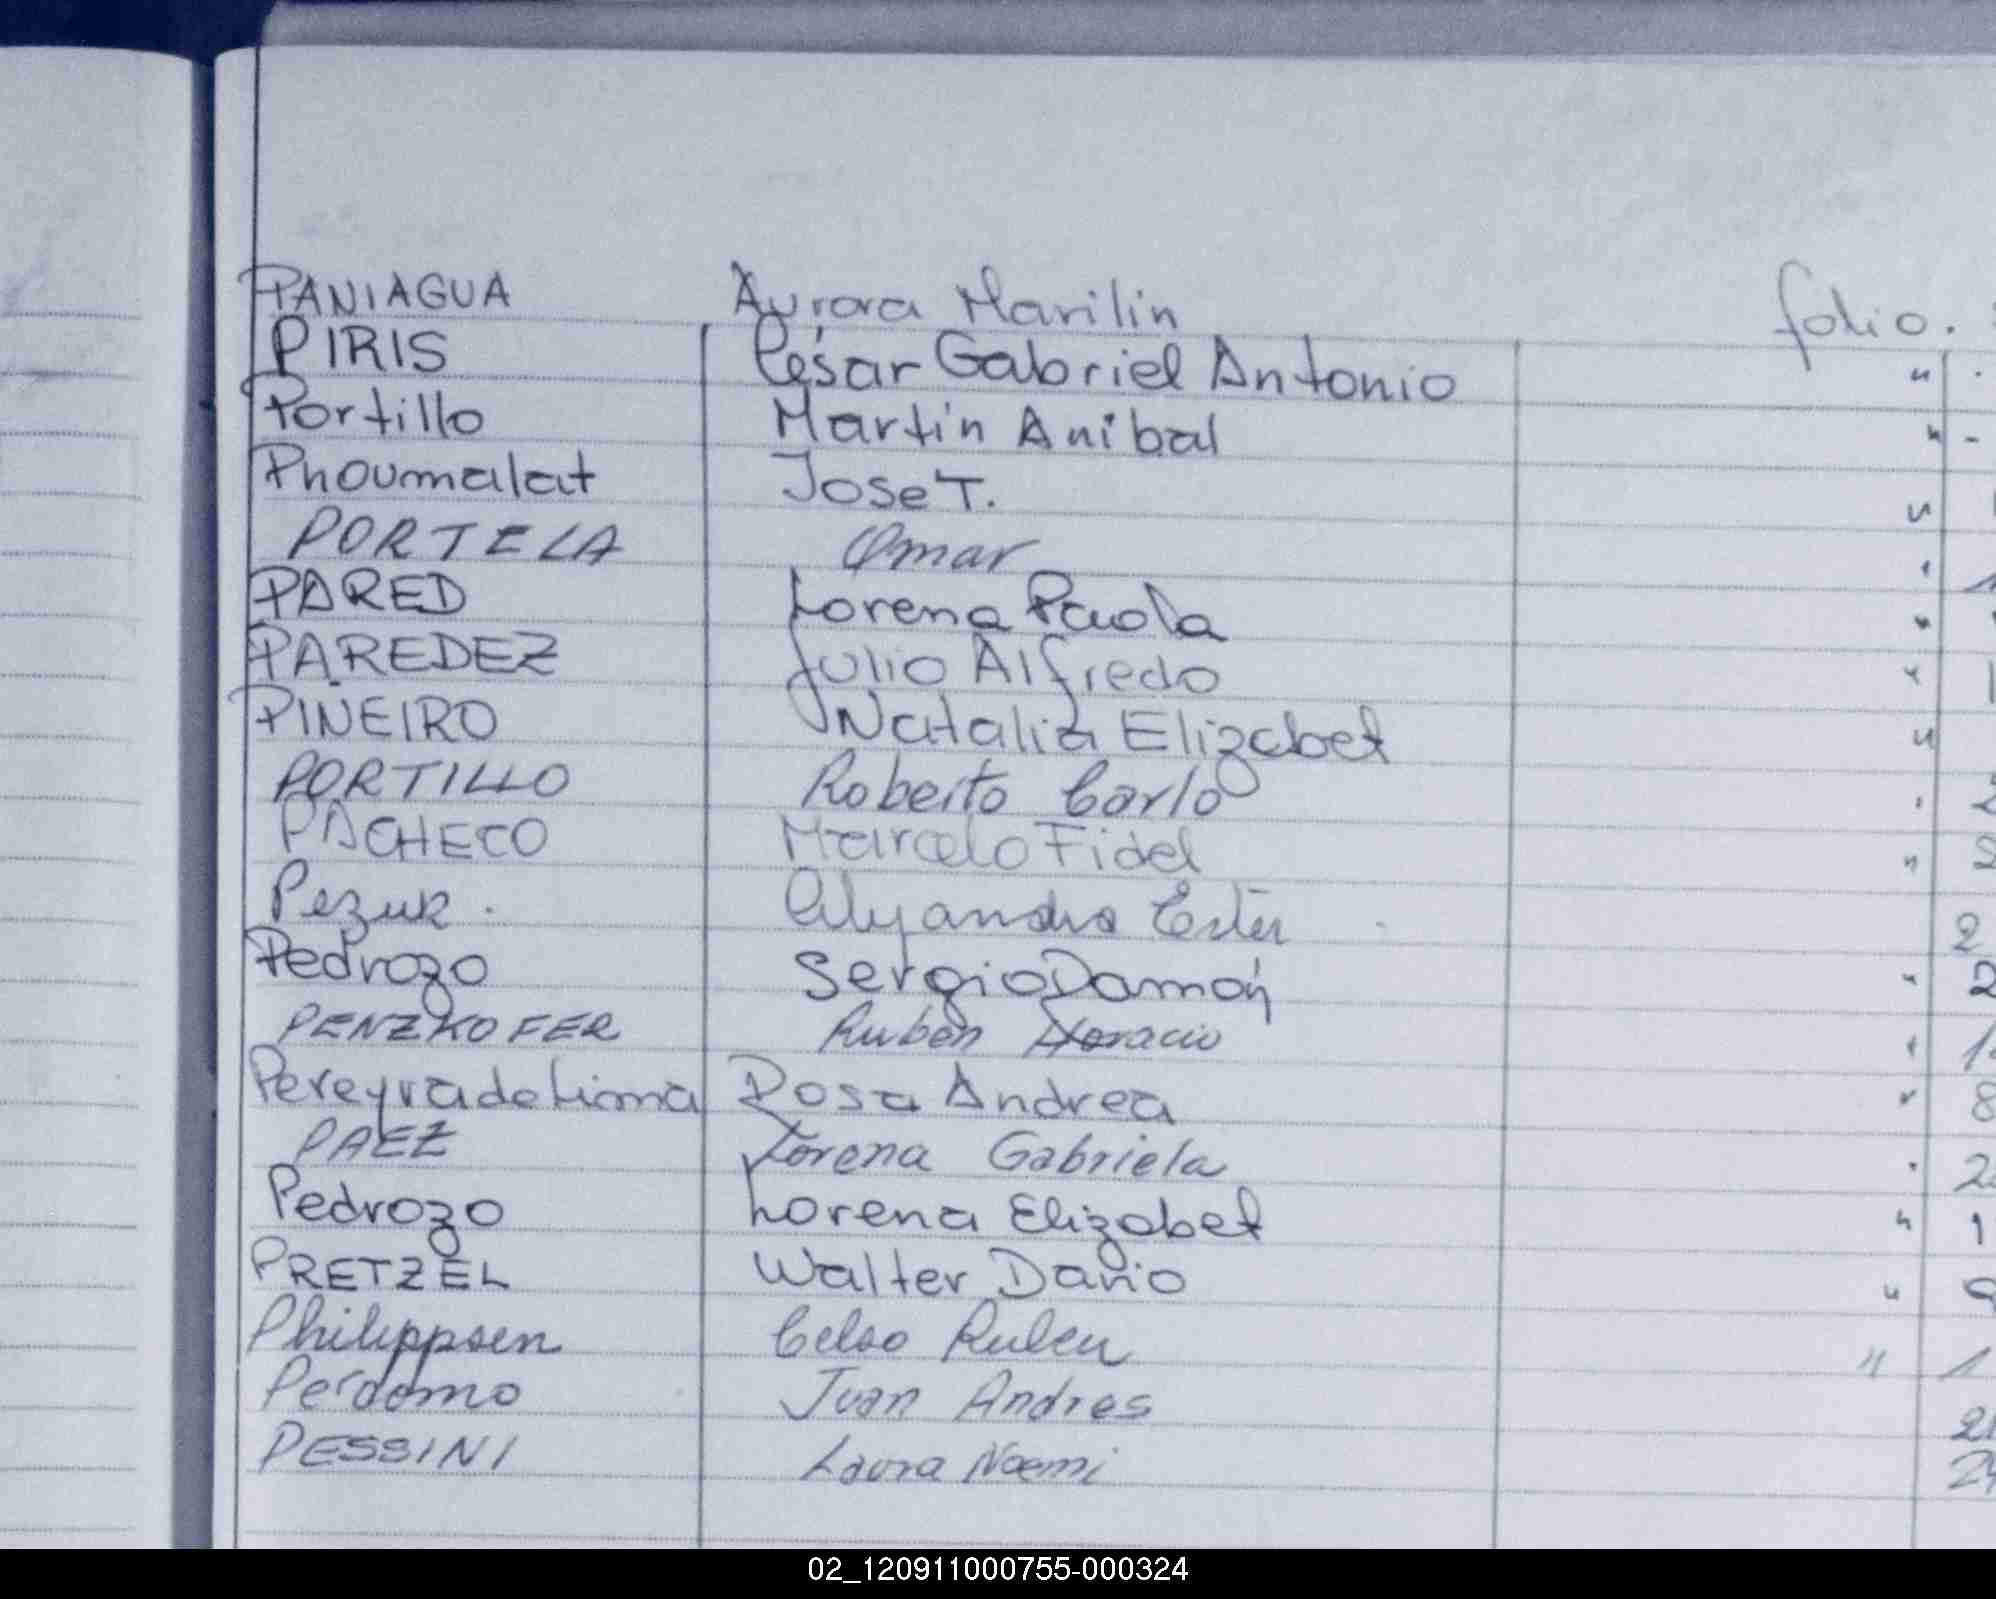 PANIAGUA Aurora Marilin folio.
PIRIS César Gabriel Antonio "
Portillo Martín Anibal " -
Phoumalat Jose T. "
PORTELA Omar
PARED Lorena Paola "
PAREDEZ Julio Alfredo " 1
PIÑEIRO Natalia Elizabet "
PORTILLO Roberto Carlo 2
PACHECO Marcelo Fidel " 2
Pezuk. Alejandra Ester 2
Pedrozo Sergio Damón " 2
PENZKOFER Ruben Horacio
Pereyra de Lima Rosa Andrea " 8
PAEZ Lorena Gabriela 2
Pedrozo Lorena Elizabet " 1
PRETZEL Walter Dario "
Philippsen Celso Ruben " 1
Perdomo Juan Andres 21
PESSINI Laura Noemi 24
02_120911000755-000324